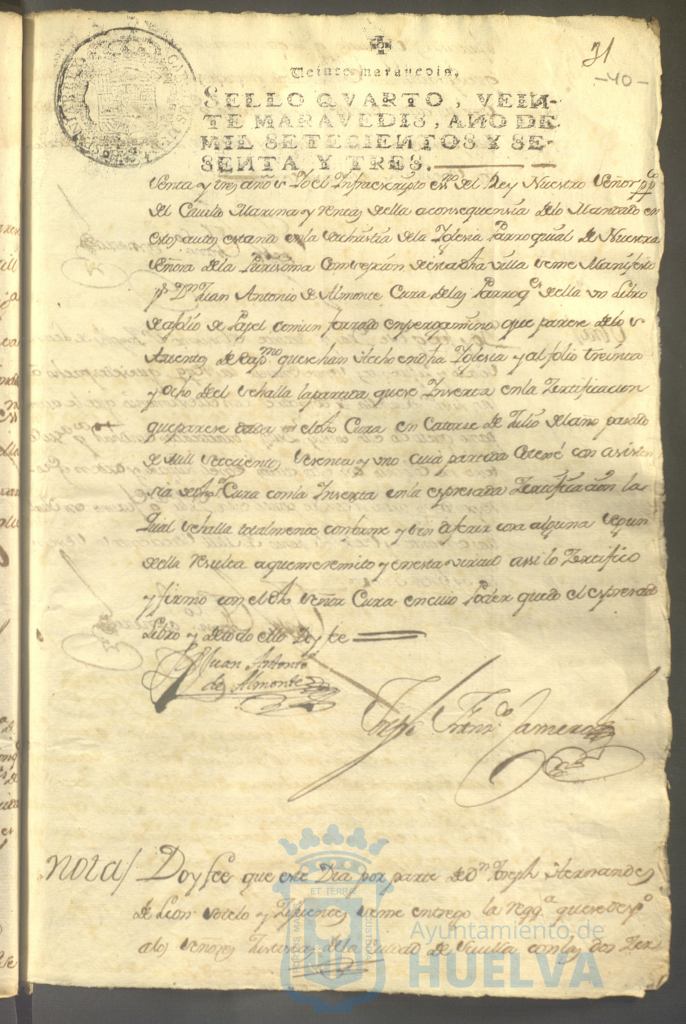 31
-40-
Veinte maravedis.
SELLO QVARTO, VEIN-
TE MARAVEDIS, AÑO DE
MIL SETECIENTOS Y SE-
SENTA Y TRES.
senta y tres años Yo el Infraescripto esno del Rey Nuestro Señor
del Cavildo y Rentas della a consequensia delo Mandado en
estos autos estando en la Sachristia dela Yglesia Parroquial de Nuestra
Señora dela Purissima Consepcion de esta dha villa seme Manifesto
pr Dn Juan Antonio de Almonte Cura delas Parroqs della un Libro
de afolio de Papel comun forrado en pergamino que parese delos
asientos de Bapmos que se han fecho en dha Yglesia y al folio treinta
y ocho del se halla la partida que se Inserta en la Zertificacion
que parese dada por el dho Cura en Catorse de Julio del año pasado
de Mill Settecientos sesenta y uno cuia partida Cotexé con asisten
sia de dho Cura con la Inserta en la expresada Zertificasion la
Qual se halla totalmente conforme y sin diferir cosa alguna segun
della resulta a que me remito y en esta virtud assi lo Zertifico
y firmo con el dho Señor Cura en cuio Poder quedó el espresado
Libro y de todo ello Doy fee
Juan Antonio
de Almonte
Joseph Franco Camero
Nota/ Doy fee que este Dia por parte de Dn Joseph Hernandes
de Leon Sotelo y Zifuentes seme entrego la
a los Señores de la Ciudad de Sevilla con las dos Zer
ET TERRAE
Ayuntamiento de
HUELVA